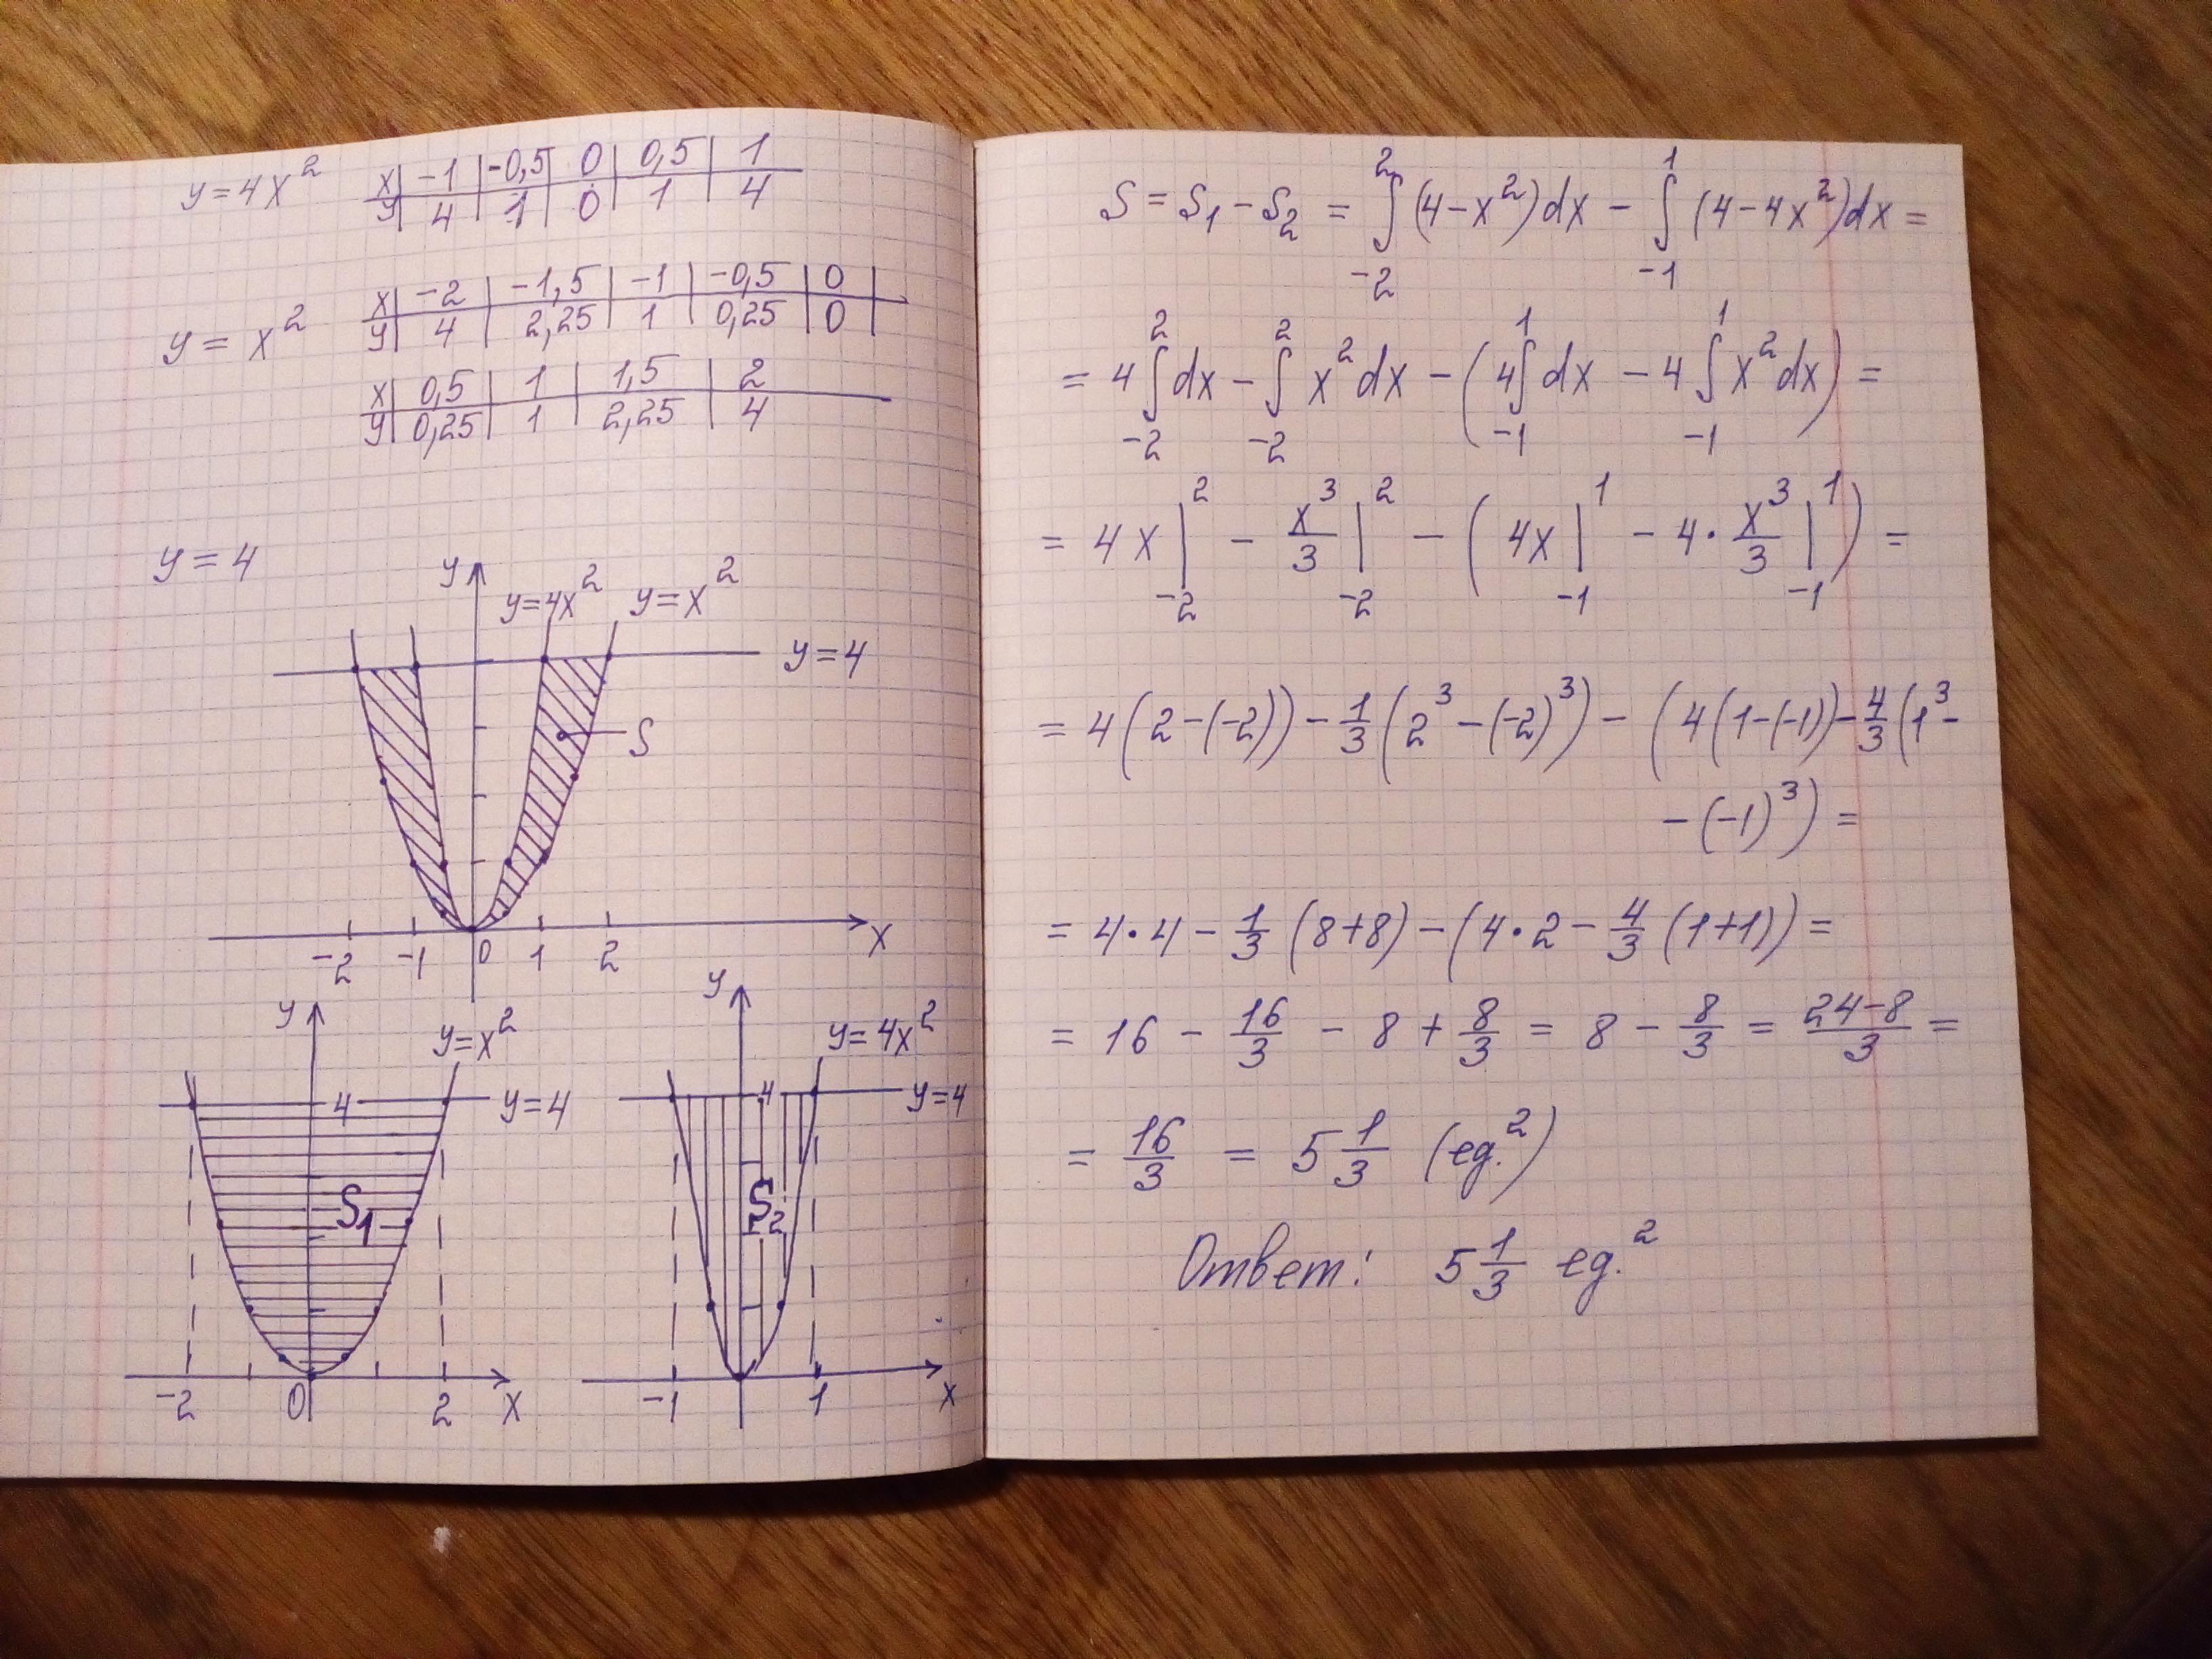 y = 4x²
x | -1 | -0,5 | 0 | 0,5 | 1
y | 4 | 1 | 0 | 1 | 4
y = x²
x | -2 | -1,5 | -1 | -0,5 | 0 |
y | 4 | 2,25 | 1 | 0,25 | 0 |
x | 0,5 | 1 | 1,5 | 2
y | 0,25 | 1 | 2,25 | 4
y = 4
y
y=4x² y=x²
y=4
S
-2 -1 0 1 2 x
y
y=x²
4 y=4
S₁
-2 0 2 x
y
y=4x²
4 y=4
S₂
-1 1 x
S = S₁ - S₂ = ∫₋₂² (4-x²)dx - ∫₋₁¹ (4-4x²)dx =
= 4∫₋₂² dx - ∫₋₂² x²dx - (4∫₋₁¹ dx - 4∫₋₁¹ x²dx) =
= 4x|₋₂² - x³/3|₋₂² - (4x|₋₁¹ - 4·x³/3|₋₁¹) =
= 4(2-(-2)) - 1/3(2³-(-2)³) - (4(1-(-1)) - 4/3(1³-
-(-1)³) =
= 4·4 - 1/3(8+8) - (4·2 - 4/3(1+1)) =
= 16 - 16/3 - 8 + 8/3 = 8 - 8/3 = 24-8/3 =
= 16/3 = 5 1/3 (ед.²)
Ответ: 5 1/3 ед.²